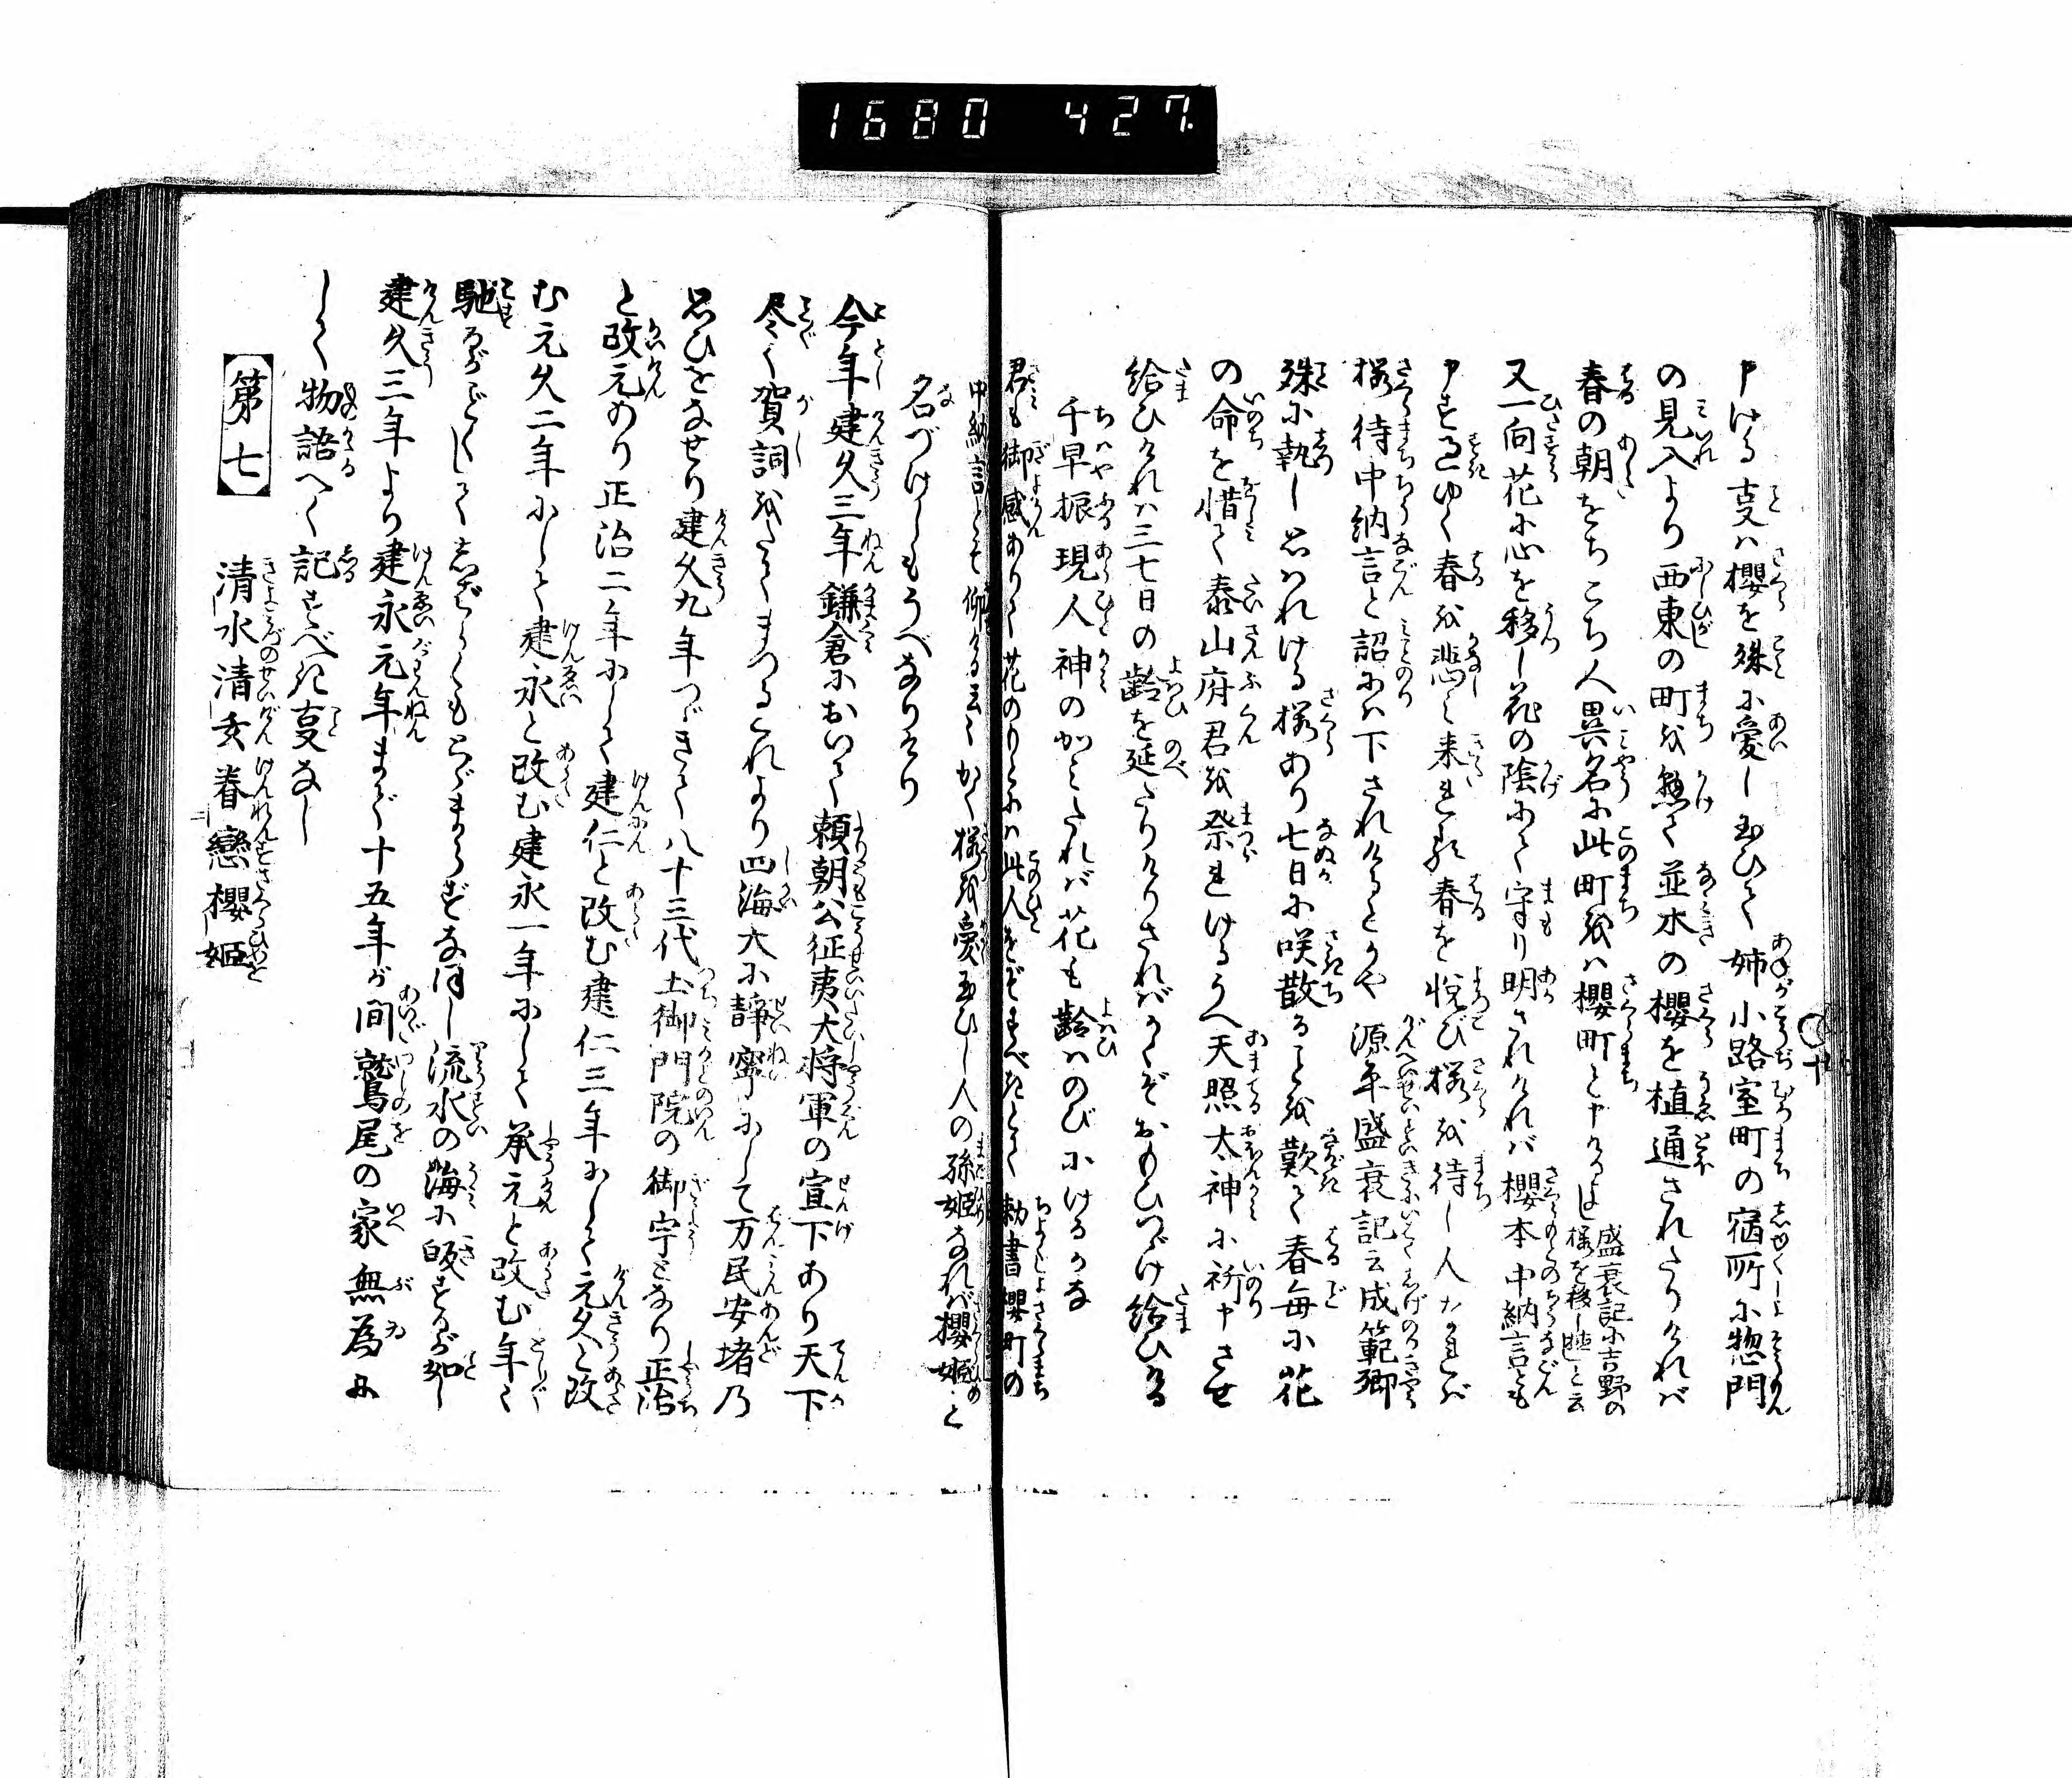 1680 427.
申ける事ハ櫻を殊に愛し玉ひて姉小路室町の宿所に惣門
の見入より西東の町を懸て並木の櫻を植通されたりければ
春の朝をちこち人異名に此町をハ櫻町と申けるよし
盛衰記に吉野の
櫻を移し植と云
又一向花に心を移し花の陰にて守り明されければ櫻本中納言とも
申す過ゆく春を悲しみ来れる春を悦び櫻を待し人なれば
櫻待中納言と詔にハ下されけるとかや源平盛衰記云成範卿
殊に執し思はれける櫻あり七日に咲散ることを歎て春毎に花
の命を惜て泰山府君を祭れけるうへ天照太神に祈申させ
給ひければ三七日の齢を延たりけりさればかくぞおもひつゞけ給ひける
千早振現人神のかみたれば花も齢ハのびにけるかな
君も御感ありて花のもとにハ此人をぞすべきとて勅書櫻町の
中納言とぞ仰ける云々かく櫻を愛玉ひし人の孫姫なれば櫻姫と
名づけしもうべなりけり
今年建久三年鎌倉において頼朝公征夷大将軍の宣下あり天下
尽く賀詞をたてまつるこれより四海大に静寧にして万民安堵乃
思ひをなせり建久九年つゞきて八十三代土御門院の御宇となり正治
と改元あり正治二年にして建仁と改む建仁三年にして元久と改
む元久二年にして建永と改む建永一年にして承元と改む年々
馳るがごとくして志ばらくもとゞまらずなほし流水の海に皈するが如し
建久三年より建永元年まで十五年が間鷲尾の家無為に
して物語へく記すべき事なし
第七
清水清玄眷戀櫻姫